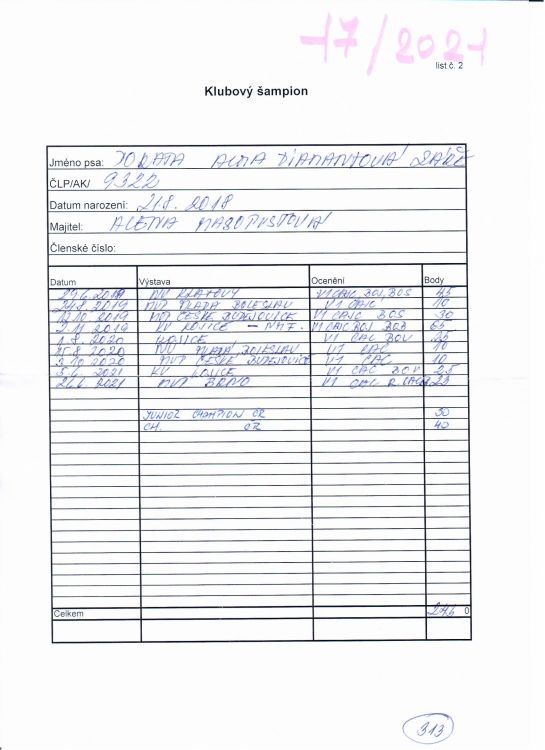 17/2021
list č. 2
Klubový šampion
Jméno psa: DORATA ALMA DIAMANTOVÁ ZÁŘE
ČLP/AK/ 9322
Datum narození: 21.8. 2018
Majitel: ALENA MASOPUSTOVÁ
Členské číslo:
Datum Výstava Ocenění Body
29.6.2019 NV KLATOVY V1 CAJC BOJ, BOS 45
24.8.2019 MVP MLADÁ BOLESLAV V1 CAJC 10
12.10 2019 MVP ČESKÉ BUDĚJOVICE V1 CAJC BOS 30
2.11 2019 KV LOJICE V1 CAJC BOJ BOB 65
1.8. 2020 V1 CAC BOV 25
15.8 2020 NV MLADÁ BOLESLAV V1 CAC 10
3.10 2020 MVP ČESKÉ BUDĚJOVICE V1 CAC 10
5.6. 2021 KV LOJICE V1 CAC BOV 25
26.6 2021 MVP BRNO V1 CAC R.CACIB 23
JUNIOR CHAMPION ČR 30
CH. ČR 40
Celkem 0
313